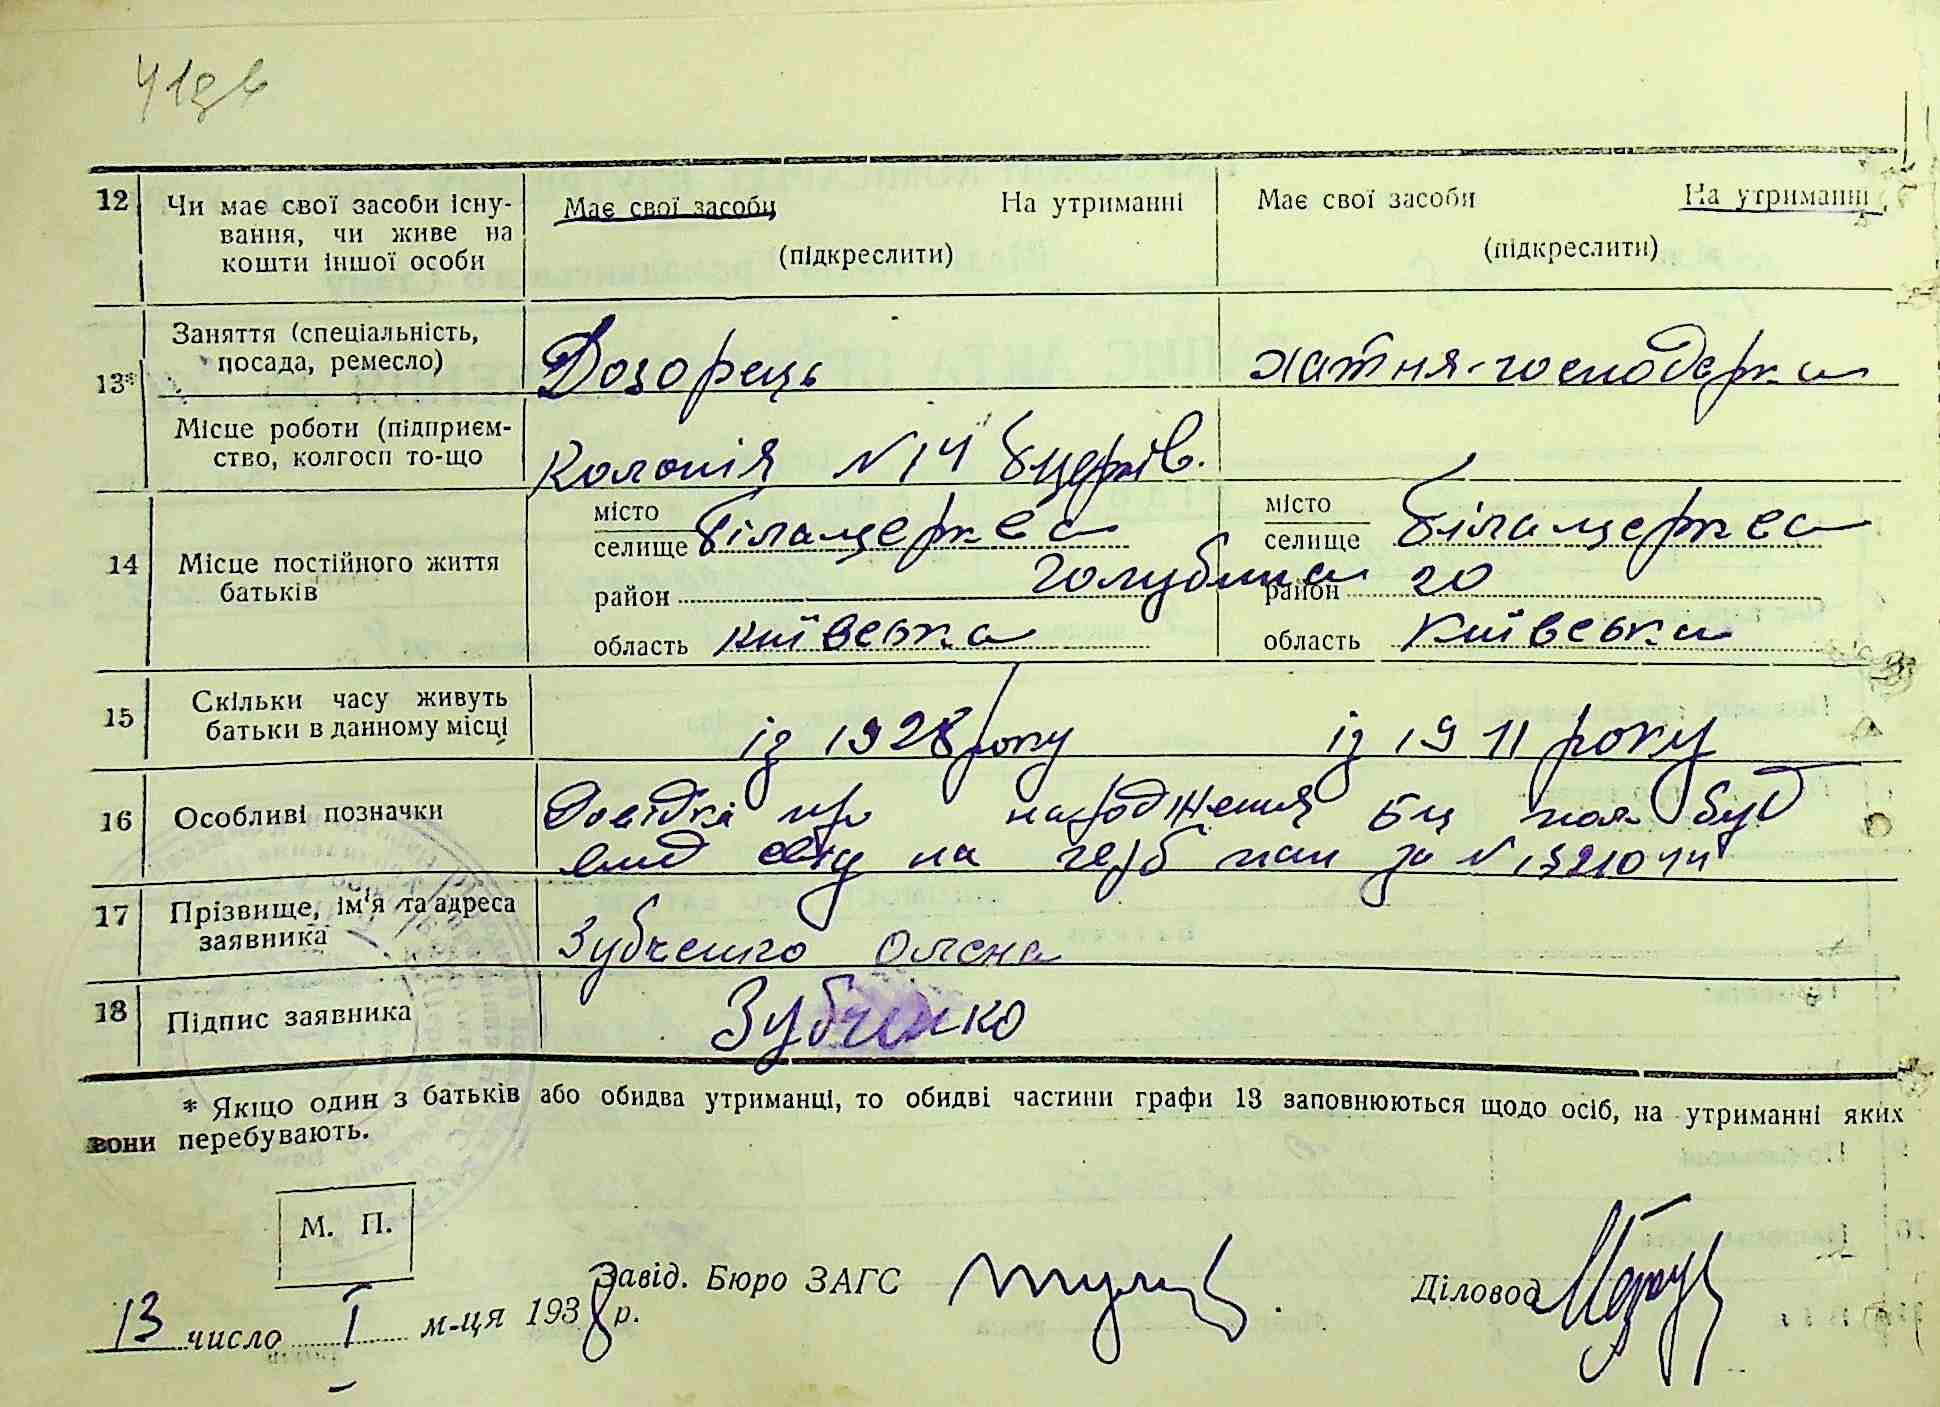 12 Чи має свої засоби існу- Має свої засоби На утриманні Має свої засоби На утриманні
вання, чи живе на
кошти іншої особи (підкреслити) (підкреслити)
Заняття (спеціальність,
посада, ремесло) Дозорець хатня-господарка
13*
Місце роботи (підприєм-
ство, колгосп то-що Колонія N 14 бцерків.
місто місто
селище Білацерква селище Білацерква
14 Місце постійного життя
батьків район район 20
область Київська область Київська
15 Скільки часу живуть
батьки в данному місці із 1928 року із 1911 року
16 Особливі позначки Довідка про народження бц пол буд
на герб пап за N
17 Прізвище, ім'я та адреса
заявника Зубченко Олена
18 Підпис заявника Зубченко
* Якщо один з батьків або обидва утриманці, то обидві частини графи 13 заповнюються щодо осіб, на утриманні яких
вони перебувають.
М. П.
Завід. Бюро ЗАГС Діловод
13 число I м-ця 1938 р.